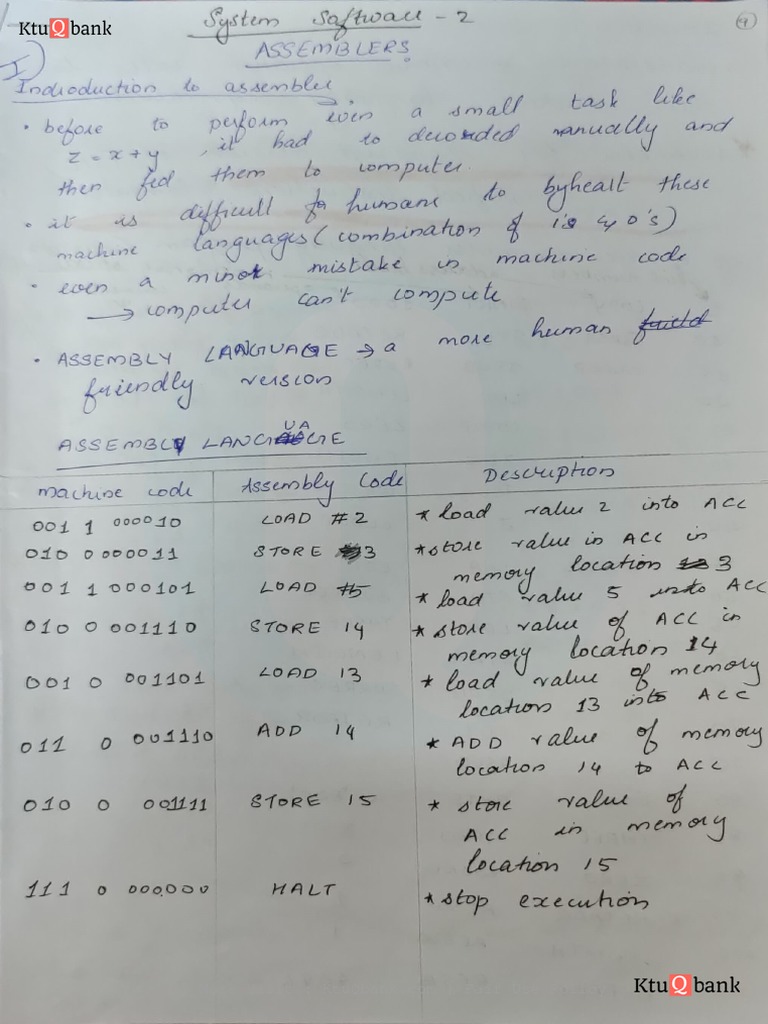 KtuQbank
System Software - 2
9
ASSEMBLERS
I)
Indroduction to assembler
• before to perform even a small task like
z = x + y , it had to decoded manually and
then fed them to computer.
• it is difficult for humans to byheart these
machine languages (combination of 1's & 0's)
• even a minor mistake in machine code
→ computer can't compute
• ASSEMBLY LANGUAGE → a more human
friendly version
ASSEMBLY LANGUAGE
machine code Assembly Code Description
001 1 000010 LOAD #2 * load value 2 into ACC
010 0 000011 STORE 3 * store value in ACC in
memory location 3
001 1 000101 LOAD #5 * load value 5 into ACC
010 0 001110 STORE 14 * store value of ACC in
memory location 14
001 0 001101 LOAD 13 * load value of memory
location 13 into ACC
011 0 001110 ADD 14 * ADD value of memory
location 14 to ACC
010 0 001111 STORE 15 * store value of
ACC in memory
location 15
111 0 000000 HALT * stop execution
KtuQbank